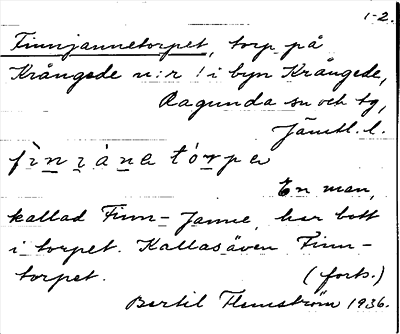 1-2.
Finnjannetorpet, torp på
Krångede n:r 1 i byn Krångede,
Ragunda sn och tg,
Jämtl. l.
En man,
kallad Finn-Janne, har bott
i torpet. Kallas även Finn-
torpet. (forts.)
Bertil Flemström 1936.